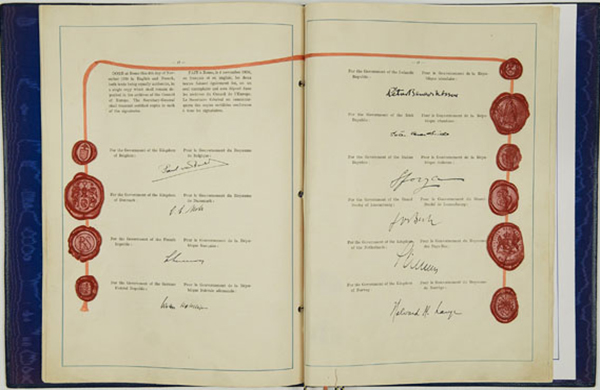 DONE at Rome this 4th day of November
1950 in English and French,
both texts being equally authentic, in
a single copy which shall remain deposited
in the archives of the Council
of Europe. The Secretary-General
shall transmit certified copies to each
of the signatories.
FAIT à Rome, le 4 novembre 1950,
en français et en anglais, les deux
textes faisant également foi, en un
seul exemplaire qui sera déposé dans
les archives du Conseil de l'Europe.
Le Secrétaire Général en communiquera
des copies certifiées conformes
à tous les signataires.
For the Government of the Kingdom
of Belgium:
Pour le Gouvernement du Royaume
de Belgique:
For the Government of the Kingdom
of Denmark:
Pour le Gouvernement du Royaume
de Danemark:
For the Government of the French
Republic:
Pour le Gouvernement de la République
française:
For the Government of the German
Federal Republic:
Pour le Gouvernement de la République
fédérale allemande:
For the Government of the Icelandic
Republic:
Pour le Gouvernement de la République
islandaise:
For the Government of the Irish
Republic:
Pour le Gouvernement de la République
irlandaise:
For the Government of the Italian
Republic:
Pour le Gouvernement de la République
italienne:
Sforza
For the Government of the Grand
Duchy of Luxembourg:
Pour le Gouvernement du Grand
Duché de Luxembourg:
Jos Bech
For the Government of the Kingdom
of the Netherlands:
Pour le Gouvernement du Royaume
des Pays-Bas:
For the Government of the Kingdom
of Norway:
Pour le Gouvernement du Royaume
de Norvège:
Halvard M. Lange